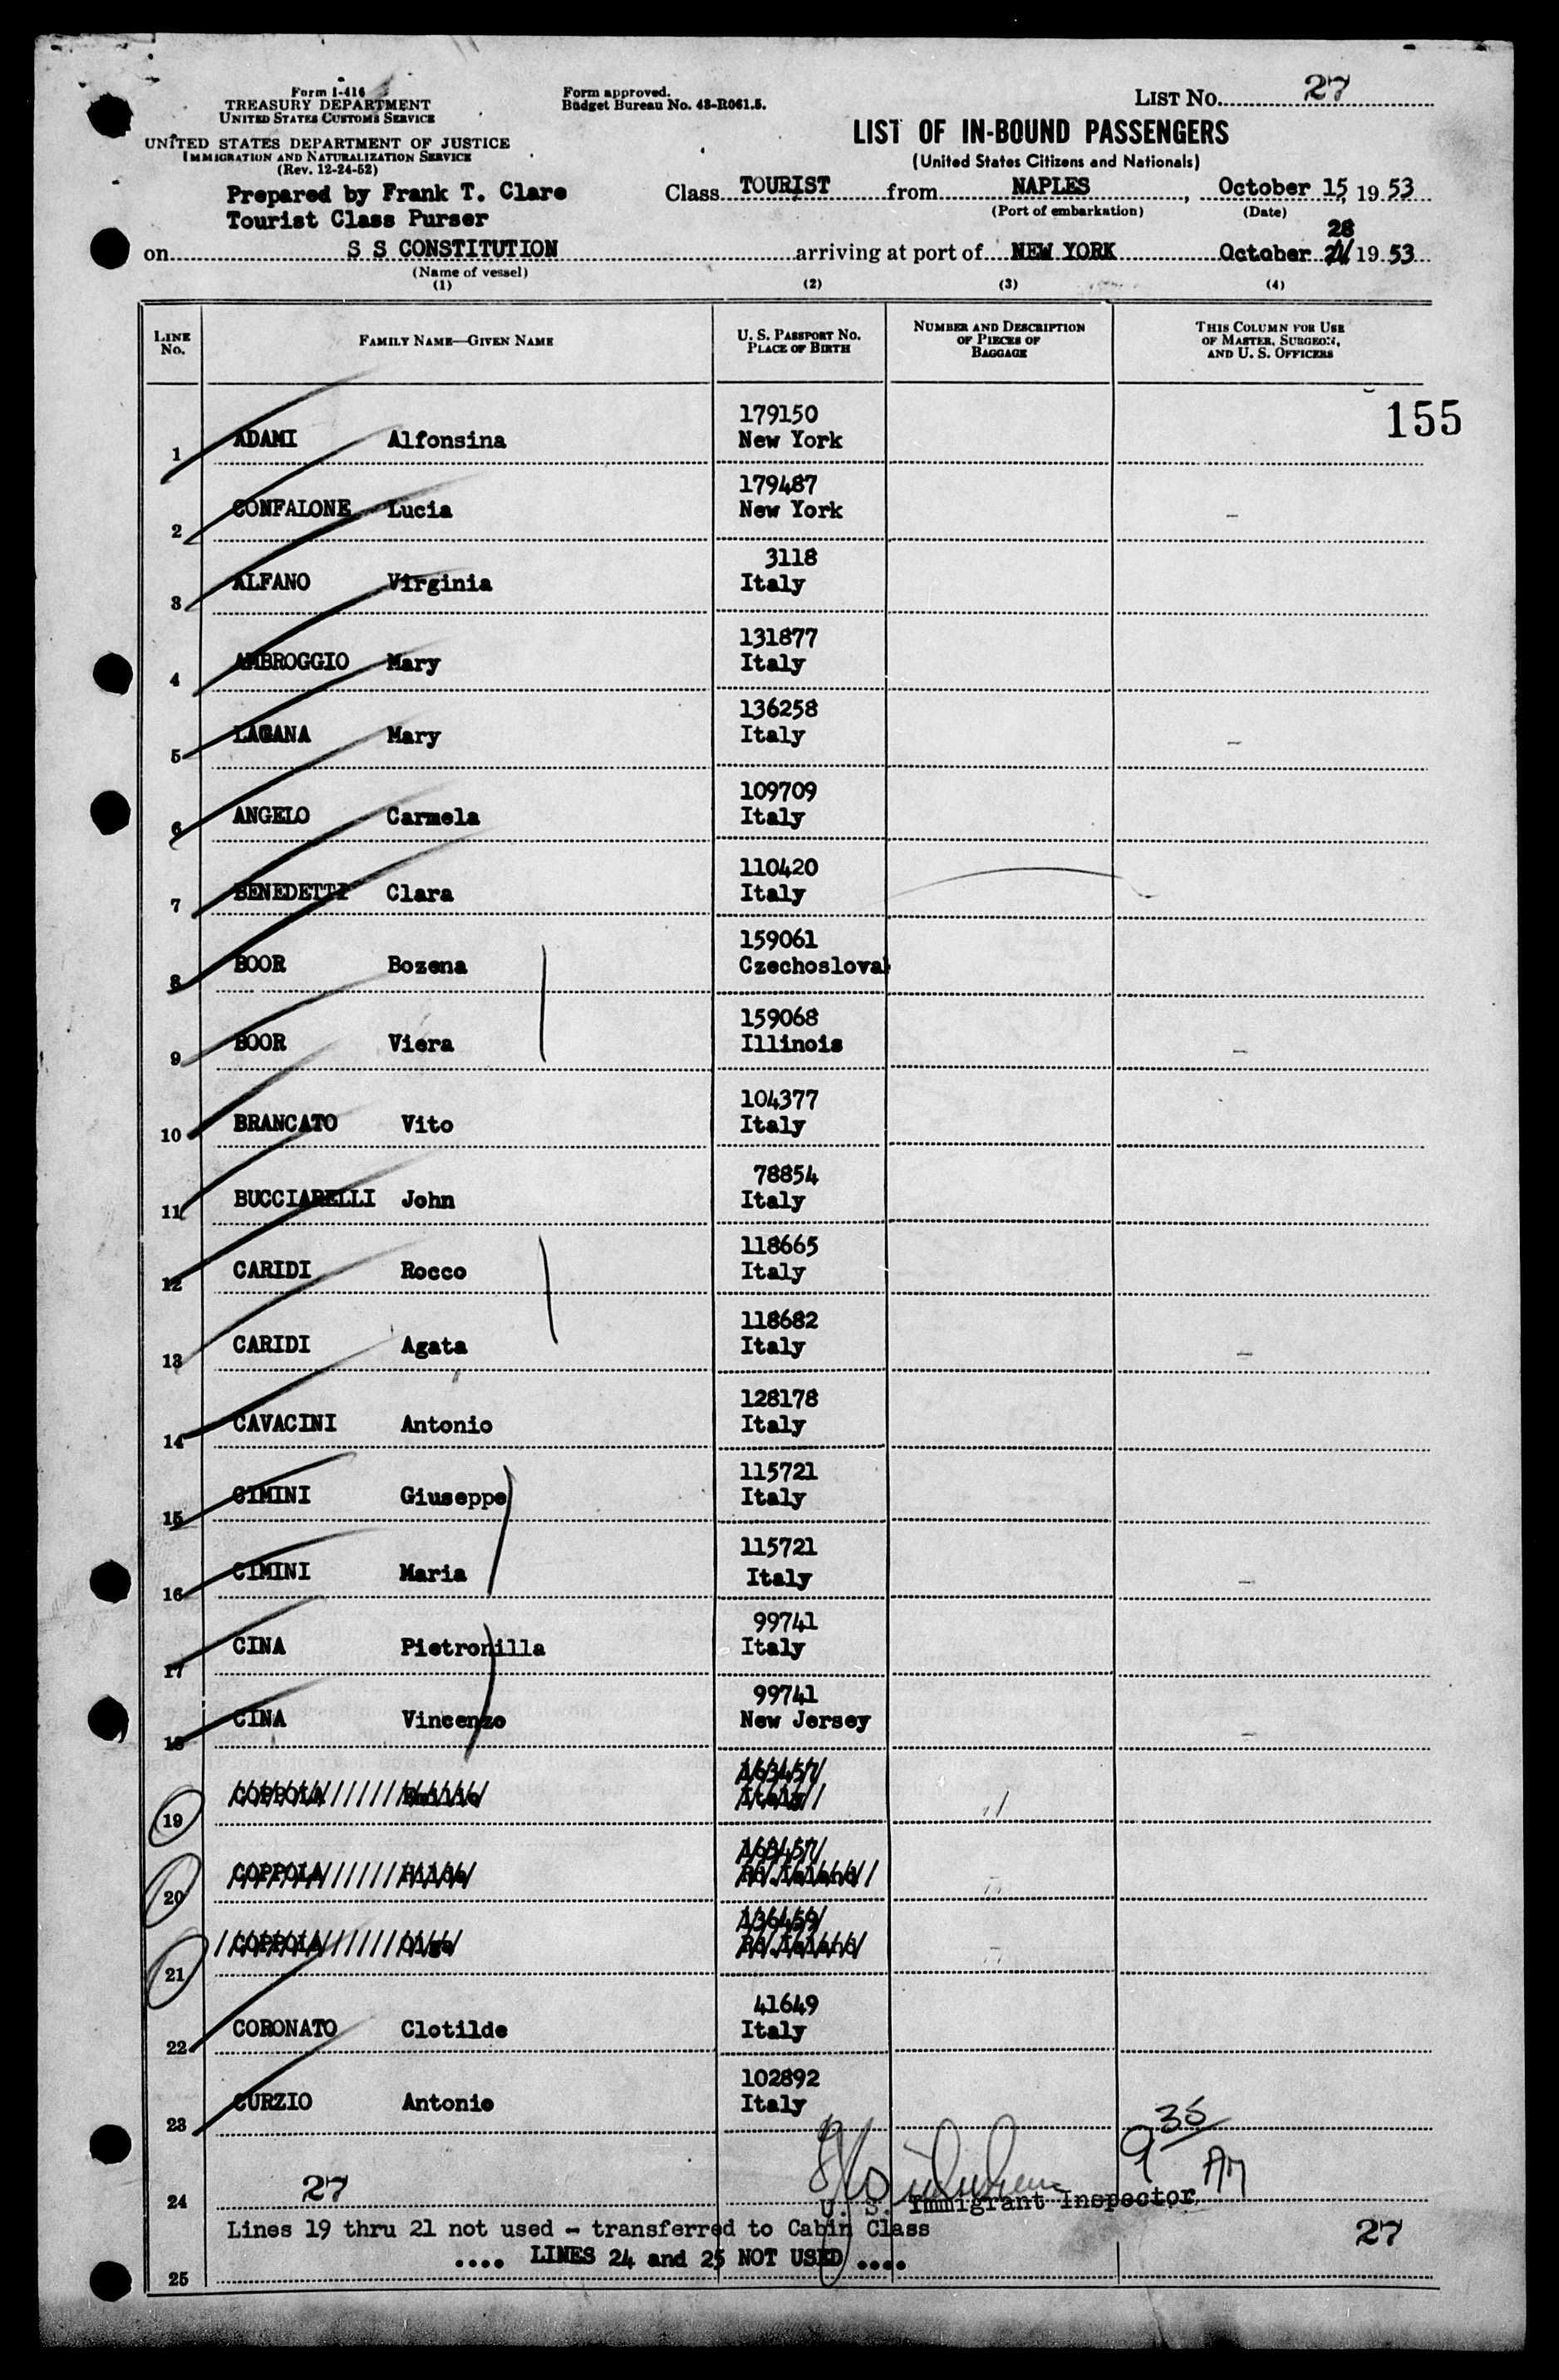 Form I-416
TREASURY DEPARTMENT
UNITED STATES CUSTOMS SERVICE
UNITED STATES DEPARTMENT OF JUSTICE
IMMIGRATION AND NATURALIZATION SERVICE
(Rev. 12-24-52)
Form approved.
Budget Bureau No. 43-R061.5.
LIST No. 27
LIST OF IN-BOUND PASSENGERS
(United States Citizens and Nationals)
Prepared by Frank T. Clare
Tourist Class Purser
Class TOURIST from NAPLES, October 15, 19 53
(Port of embarkation) (Date)
28
on S S CONSTITUTION arriving at port of NEW YORK October 19 53
(Name of vessel)
(1) (2) (3) (4)
LINE No. FAMILY NAME—GIVEN NAME U. S. PASSPORT NO. PLACE OF BIRTH NUMBER AND DESCRIPTION OF PIECES OF BAGGAGE THIS COLUMN FOR USE OF MASTER, SURGEON, AND U. S. OFFICERS
155
179150
1 ADAMI Alfonsina New York
179487
2 CONFALONE Lucia New York
3118
3 ALFANO Virginia Italy
131877
4 AMBROGGIO Mary Italy
136258
5 LAGANA Mary Italy
109709
6 ANGELO Carmela Italy
110420
7 BENEDETTI Clara Italy
159061
8 BOOR Bozena Czechoslovak
159068
9 BOOR Viera Illinois
104377
10 BRANCATO Vito Italy
78854
11 BUCCIARELLI John Italy
118665
12 CARIDI Rocco Italy
118682
13 CARIDI Agata Italy
128178
14 CAVACINI Antonio Italy
115721
15 CIMINI Giuseppe Italy
115721
16 CIMINI Maria Italy
99741
17 CINA Pietronilla Italy
99741
18 CINA Vincenzo New Jersey
163457
19 COPPOLA Italy
163457
20 COPPOLA Rd.Island
136459
21 COPPOLA Olga Rd.Island
41649
22 CORONATO Clotilde Italy
102892
23 CURZIO Antonio Italy
9 35 AM
24 27
U. S. Immigrant Inspector
Lines 19 thru 21 not used - transferred to Cabin Class
27
.... LINES 24 and 25 NOT USED ....
25